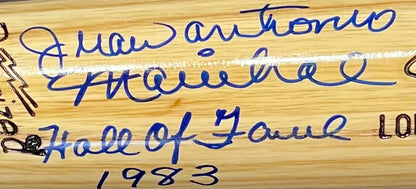 Juan Antonio
Marichal
Hall Of Fame
1983